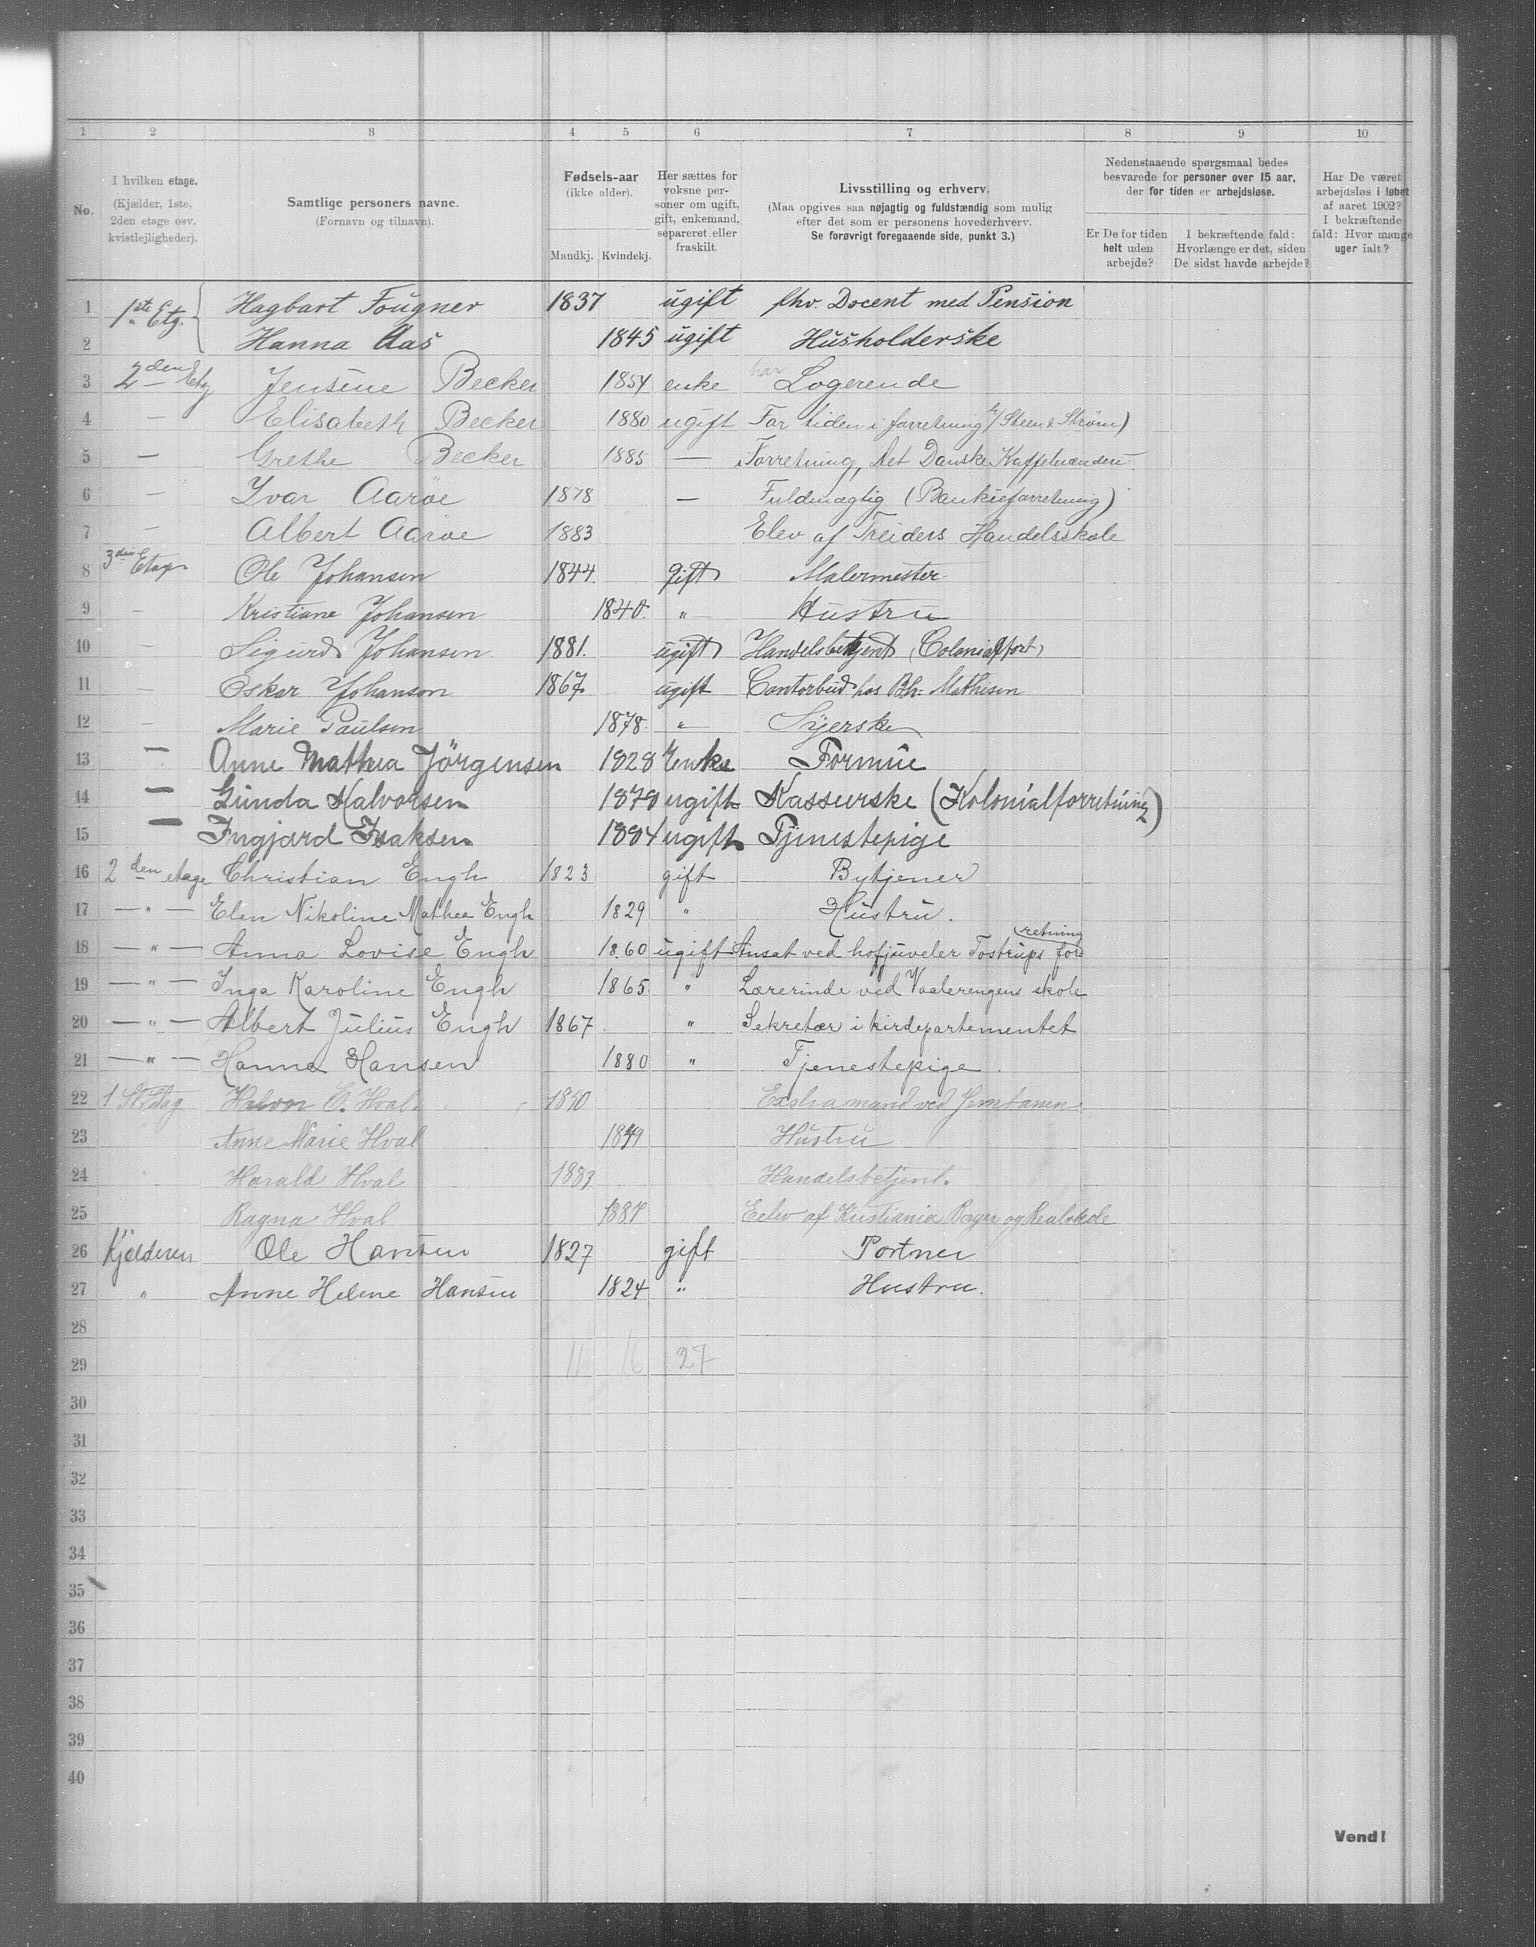 1 2 3 4 5 6 7 8 9 10
No.
I hvilken etage.
(Kjælder, 1ste,
2den etage osv.
kvistlejligheder).
Samtlige personers navne.
(Fornavn og tilnavn).
Fødsels-aar
(ikke alder).
Mandkj. Kvindekj.
Her sættes for
voksne per-
soner om ugift,
gift, enkemand,
separeret eller
fraskilt.
Livsstilling og erhverv.
(Maa opgives saa nøjagtig og fuldstændig som mulig
efter det som er personens hovederhverv.
Se forøvrigt foregaaende side, punkt 3.)
Nedenstaaende spørgsmaal bedes
besvarede for personer over 15 aar,
der for tiden er arbejdsløse.
Er De for tiden
helt uden
arbejde?
I bekræftende fald:
Hvorlænge er det, siden
De sidst havde arbejde?
Har De været
arbejdsløs i løbet
af aaret 1902?
I bekræftende
fald: Hvor mange
uger ialt?
1 1ste Etg. Hagbart Fougner 1837 ugift fhv. Docent med Pension
2 Hanna Aas 1845 ugift Husholderske
3 2den Etg Jensine Becker 1854 enke har Logerende
4 — Elisabeth Becker 1880 ugift For tiden i forretning (Steen & Strøm)
5 — Grethe Becker 1885 — Forretning, Det Danske
6 — Ivar Aarøe 1878 — Fuldmægtig (Bankieforretning)
7 — Albert Aarøe 1883 Elev af Treiders Handelsskole
8 3die Etage Ole Johansen 1844. Gift Malermester
9 — Kristiane Johansen 1840. " Hustru
10 — Sigurd Johansen 1881. ugift Handelsbetjent (Colonialfort)
11 — Oskar Johanson 1867 ugift Contorbud hos Bh: Mathisen
12 — Marie Paulsen 1878. " Syerske
13 — Anne Mathea Jörgensen 1828 Enke Formue
14 — Gunda Halvorsen 1878 ugift Kasserske (Kolonialforretning)
15 — Ingjard Isaksen 1884 ugift Tjenestepige
16 2den etage Christian Engh 1823 gift Bytjener
17 — " — Elen Nikoline Mathea Engh 1829 " Hustru.
18 — " — Anna Lovise Engh 1860 ugift Ansat ved hofjuveler Tostrups for
retning
19 — " — Inga Karoline Engh 1865 " Lærerinde ved Vaalerengens skole
20 — " — Albert Julius Engh 1867 " Sekretær i kirdepartementet
21 — " — Hanna Hansen 1880 " Tjenestepige.
22 1 St Etag Halvor E. Hval. 1850 Exstramand ved Jernbanen
23 Anne Marie Hval 1849 Hustru
24 Harald Hval 1883 Handelsbetjent.
25 Ragna Hval 1884 Eelev af Kristiania Borger og Realskole
26 Kjelderen Ole Hansen 1827 gift Portner
27 " Anne Helene Hansen 1824 " Hustru.
28
29 11 16 27
30
31
32
33
34
35
36
37
38
39
40
Vend!